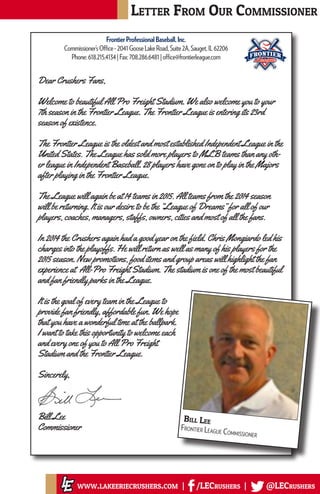 Letter From Our Commissioner
Frontier Professional Baseball, Inc.
Commissioner's Office - 2041 Goose Lake Road, Suite 2A, Sauget, IL 62206
Phone: 618.215.4134 | Fax: 708.286.6481 | office@frontierleague.com
FRONTIER
Dear Crushers Fans,
Welcome to beautiful All Pro Freight Stadium. We also welcome you to your
7th season in the Frontier League. The Frontier League is entering its 23rd
season of existence.
The Frontier League is the oldest and most established Independent League in the
United States. The League has sold more players to MLB teams than any oth-
er league in Independent Baseball. 28 players have gone on to play in the Majors
after playing in the Frontier League.
The League will again be at 14 teams in 2015. All teams from the 2014 season
will be returning. It is our desire to be the "League of Dreams" for all of our
players, coaches, managers, staffs, owners, cities and most of all the fans.
In 2014 the Crushers again had a good year on the field. Chris Mongiardo led his
charges into the playoffs. He will return as well as many of his players for the
2015 season. New promotions, food items and group areas will highlight the fan
experience at All-Pro Freight Stadium. The stadium is one of the most beautiful
and fan friendly parks in the League.
It is the goal of every team in the League to
provide fan friendly, affordable fun. We hope
that you have a wonderful time at the ballpark.
I want to take this opportunity to welcome each
and every one of you to All Pro Freight
Stadium and the Frontier League.
Sincerely,
Bill Lee
Bill Lee
Commissioner
Bill Lee
Frontier League Commissioner
LE www.lakeeriecrushers.com | f /LECrushers | @LECrushers